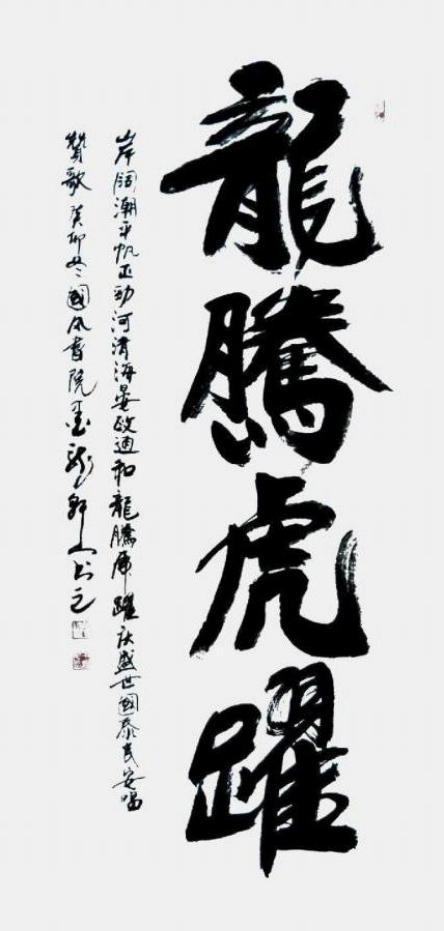 龍騰虎躍
岸闊潮平帆正勁河清海晏政通和龍騰虎躍慶盛世國泰民安唱
贊歌癸卯冬國風書院墨龍軒人書之